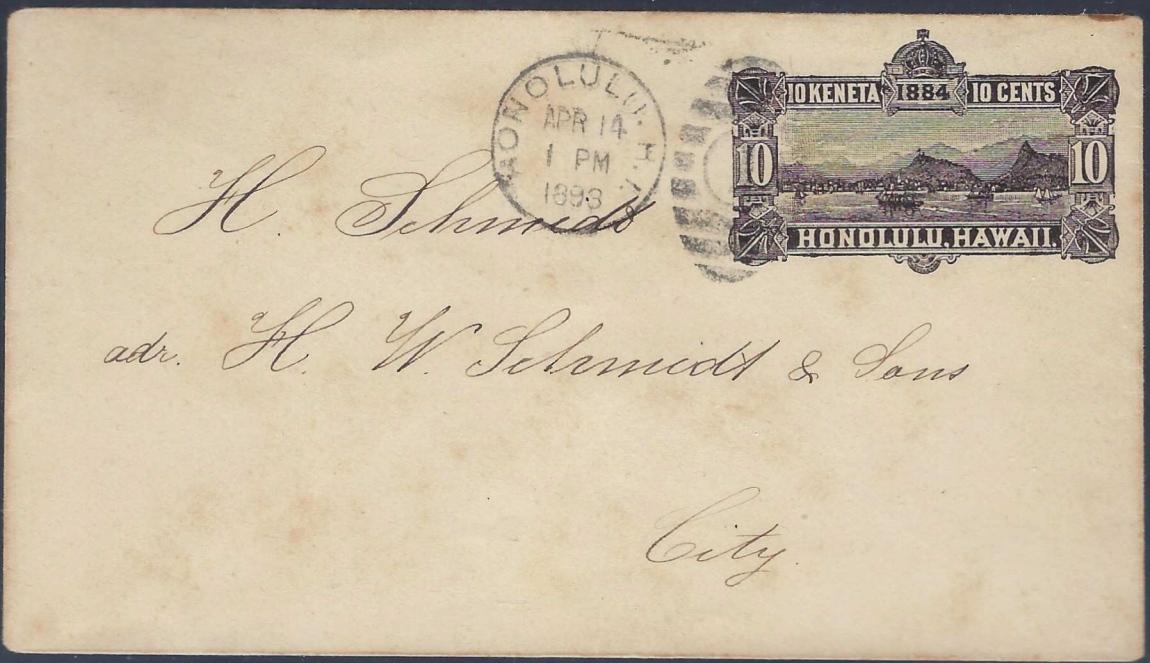 HONOLULU. H.I.
APR 14
1 PM
1893
10 KENETA 1884 10 CENTS
10 10
HONOLULU, HAWAII.
H. Schmidt
adr. H. W. Schmidt & Sons
City.